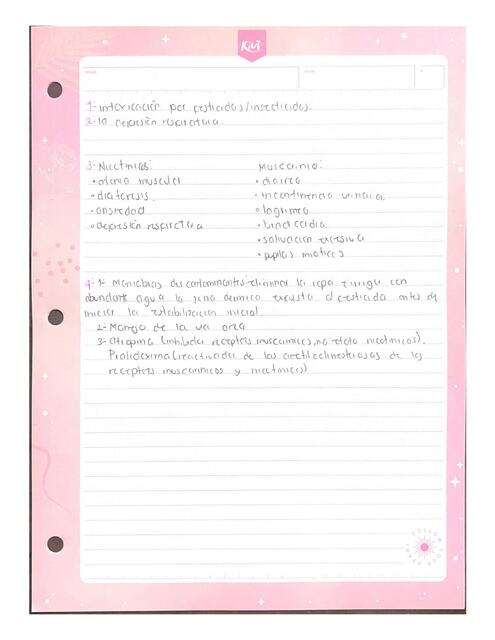 Kiut
1- intoxicación por pesticidas/insecticidas.
2- la depresión respiratoria.
3- Nicotínicos:
• atonia muscular
• diaforesis.
• ansiedad
• depresión respiratoria
Muscarinico:
• diarrea
• incontinencia urinaria.
• lagrimeo
• bradicardia
• salivación excesiva
• pupilas mioticas
4- 1- Maniobras descontaminantes: eliminar la ropa y irrigar con
abundante agua la zona dermica expuesta al pesticida antes de
iniciar la estabilización inicial.
2- Manejo de la via aerea
3- Atropina (inhibidor receptores muscarinicos, no efecto nicotinicos).
Pralidoxima (reactivador de las acetilcolinesterasas de los
receptores muscarinicos y nicotinicos)